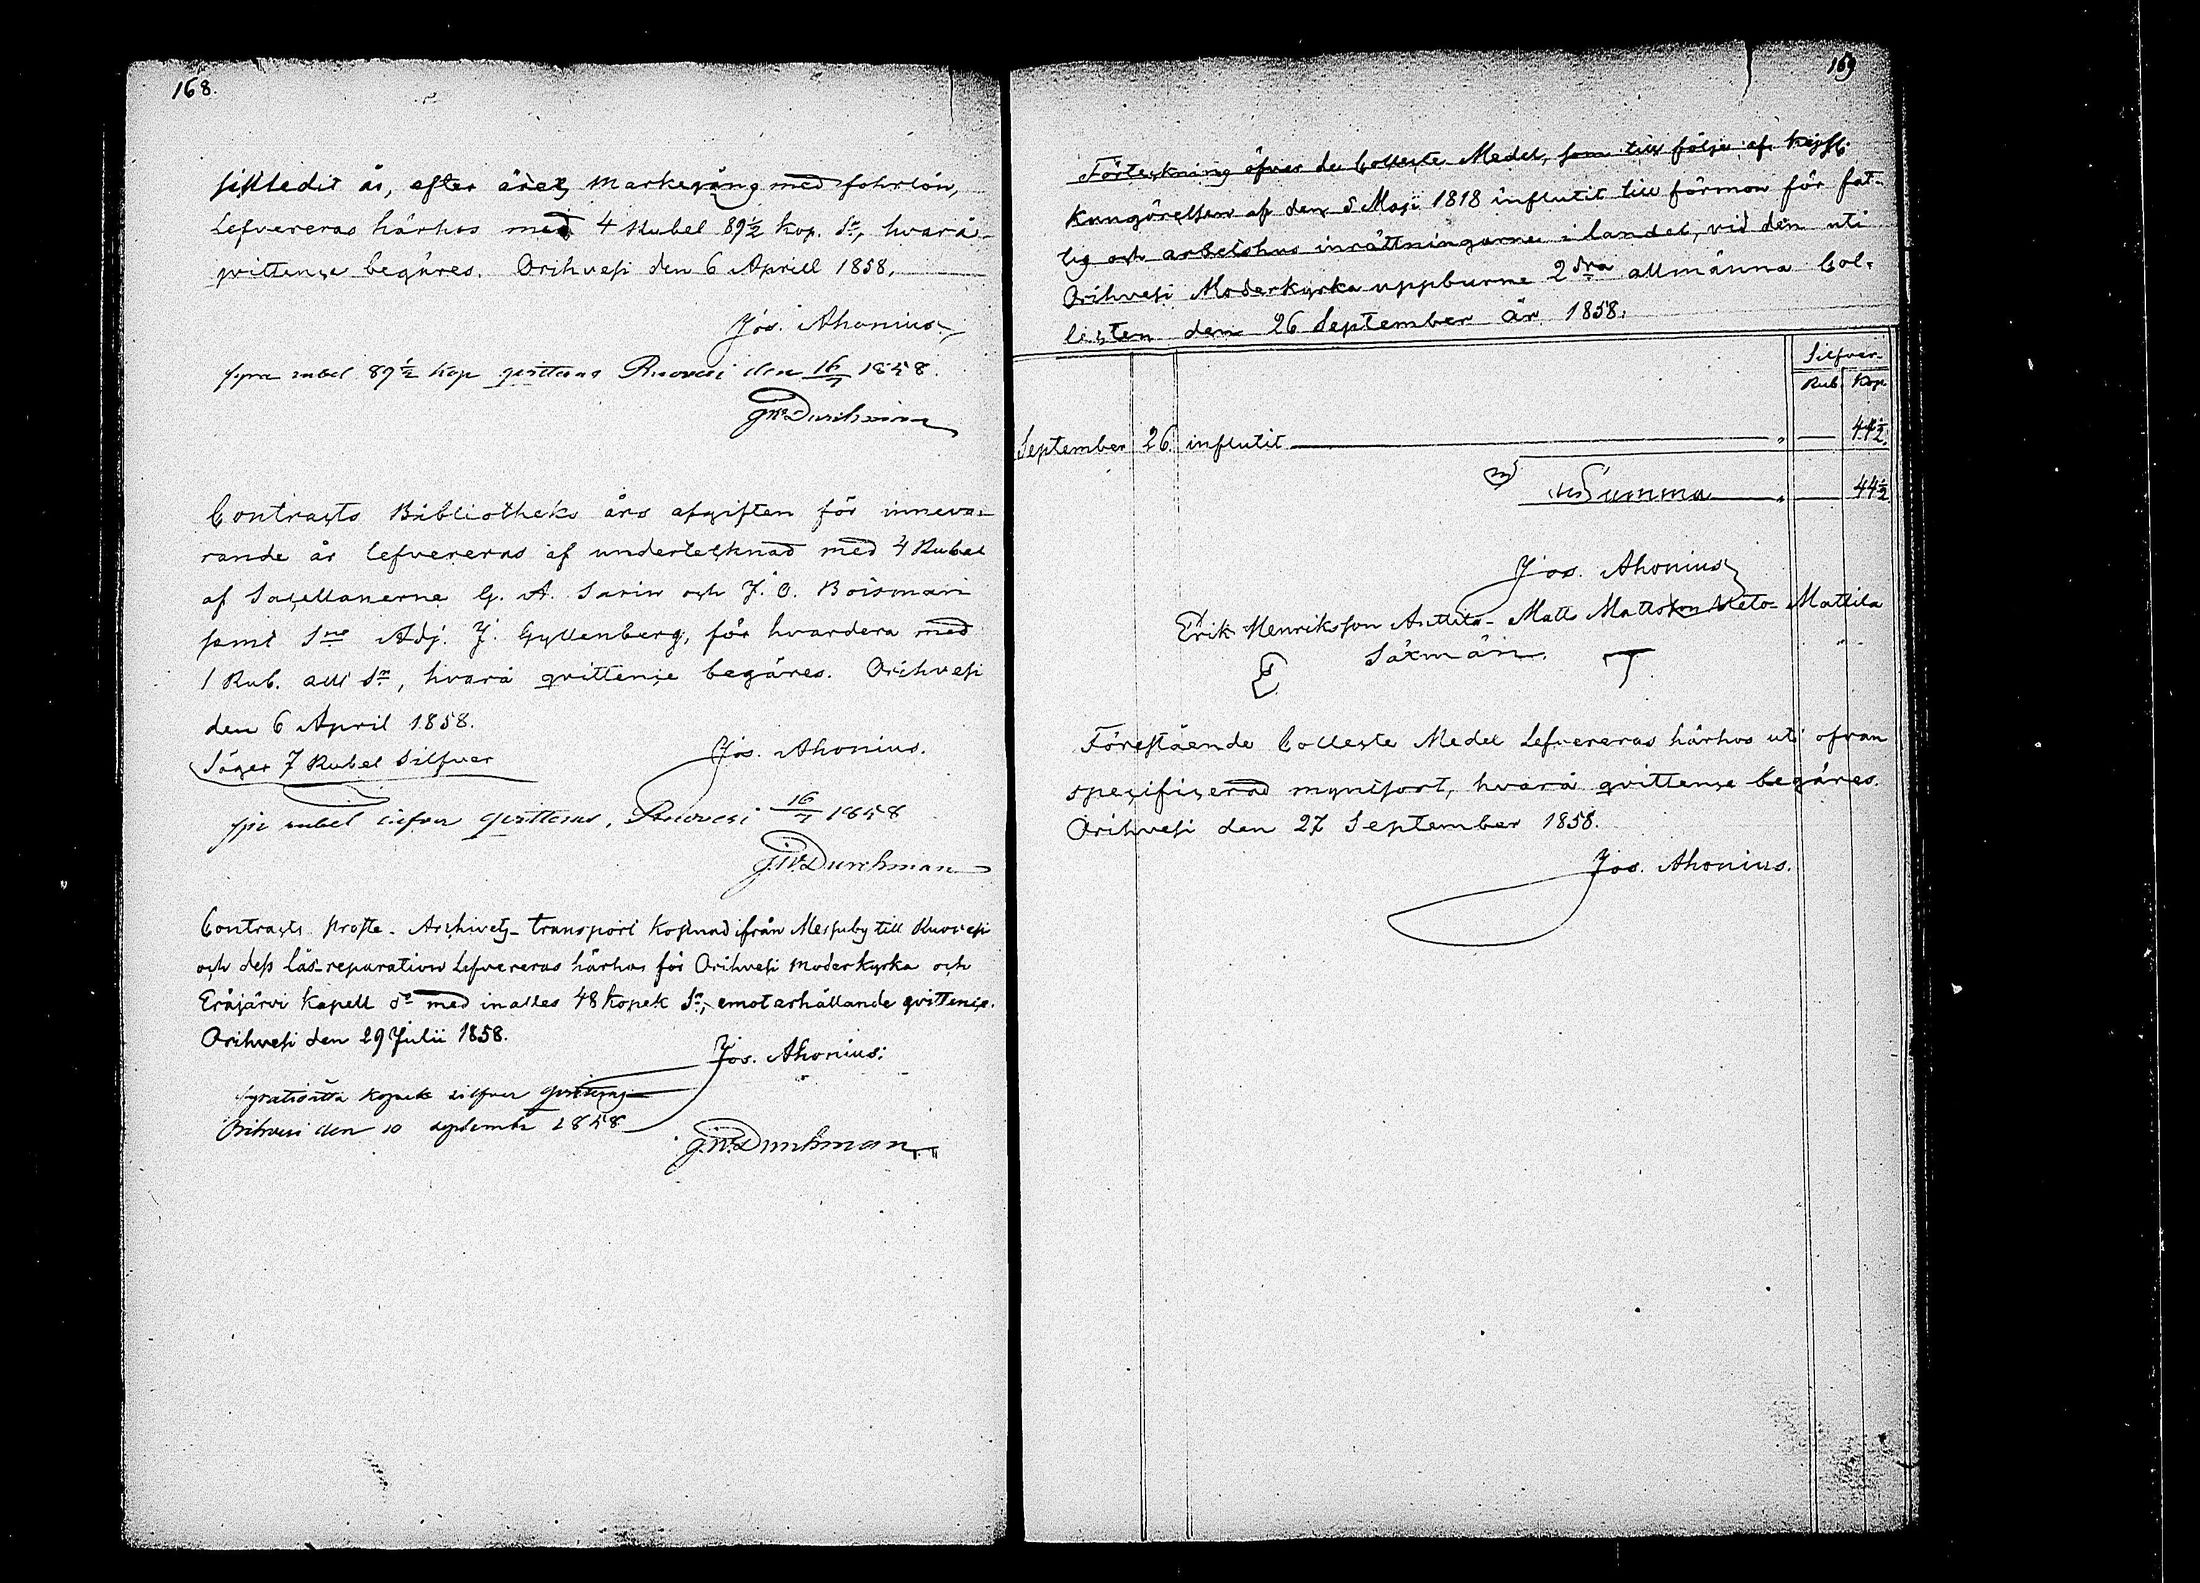 168.
sistledit år, efter årets Markegång med fohrlön,
Lefvereras härhos med 4 Rubel 89½ Kop. Sr, hvarå
qvittence begäres. Orihvesi den 6 Aprill 1858.
Jos. Ahonius.
fyra rubel 89½ kop qvitteras Ruovesi den 16/7 1858.
J.W. Durchman
Contracts Bibliotheks års afgiften för inneva-
rande år lefvereras af undertecknad med 4 Rubel
af Sacellanerne G. A. Sarin och J. O. Boisman
samt Sne Adj. J. Gyllenberg, för hvardera med
1 Rub. allt Sr, hvarå qvittence begäres. Orihvesi
den 6 April 1858.
Säger 7 Rubel Silfver
Jos. Ahonius.
sju rubel silfver qvitteras, Ruovesi 16/7 1858
J.W. Durchman
Contracts Proste-Archivets transport kostnad ifrån Messuby till Ruovesi
och dess lås-reparation Lefvereras härhos för Orihvesi Moderkyrka och
Eräjärvi Kapell do med inalles 48 kopek Sr, emot erhållande qvittence.
Orihvesi den 29 Julii 1858.
Jos. Ahonius.
fyratioåtta kopek silfver qvitteras
Orihvesi den 10 september 1858
J.W. Durchman
169
Förteckning öfver de Collecte Medel, som till följe af Kejserl.
Kungörelsen af den 5 Maji 1818 influtit till förmon för fat-
tig och arbetshus inrättningarne i landet, vid den uti
Orihvesi Moderkyrka uppburne 2dra allmänna Col-
lecten den 26 September år 1858.
Silfver
Rub. Kop.
September 26. influtit " 44½
Summa " 44½
Jos. Ahonius
Erik Henriksson Anttila - Matts Mattsson Mattila
Säxmän.
Förestående Collecte Medel Lefvereras härhos uti ofvan
specificerad myntsort, hvarå qvittence begäres.
Orihvesi den 27 September 1858.
Jos. Ahonius.